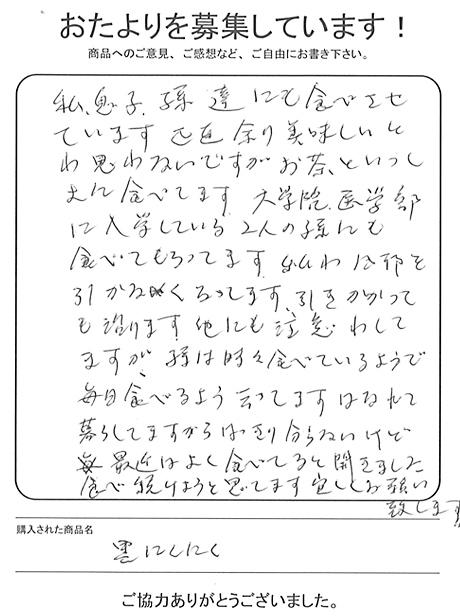 おたよりを募集しています！
商品へのご意見、ご感想など、ご自由にお書き下さい。
私、息子、孫達にも食べさせ
ています 正直余り美味しいと
わ思わないですが お茶といっし
ょに食べてます 大学院、医学部
に入学している2人の孫にも
食べてもらってます 私わ風邪を
引かなくなってます、引きかかって
も治ります 他にも注意わして
ますが、孫は時々食べているようで
毎日食べるよう云ってます はなれて
暮らしてますからはっきり分らないけど
最近はよく食べてると聞きました
食べ続けようと思てます 宜しくお願い
致します
購入された商品名
黒にんにく
ご協力ありがとうございました。